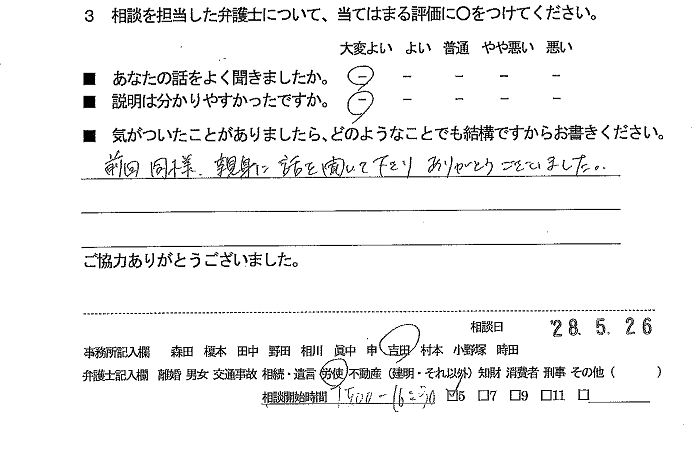 3 相談を担当した弁護士について、当てはまる評価に○をつけてください。
大変よい よい 普通 やや悪い 悪い
■ あなたの話をよく聞きましたか。 － － － － －
■ 説明は分かりやすかったですか。 － － － － －
■ 気がついたことがありましたら、どのようなことでも結構ですからお書きください。
前回同様、親身に話を聞いて下さり ありがとうございました。
ご協力ありがとうございました。
相談日 '28.5.26
事務所記入欄 森田 榎本 田中 野田 相川 眞中 申 吉田 村本 小野塚 時田
弁護士記入欄 離婚 男女 交通事故 相続・遺言 労使 不動産（建明・それ以外）知財 消費者 刑事 その他（ ）
相談開始時間 15:00-16:30 ☑5 □7 □9 □11 □